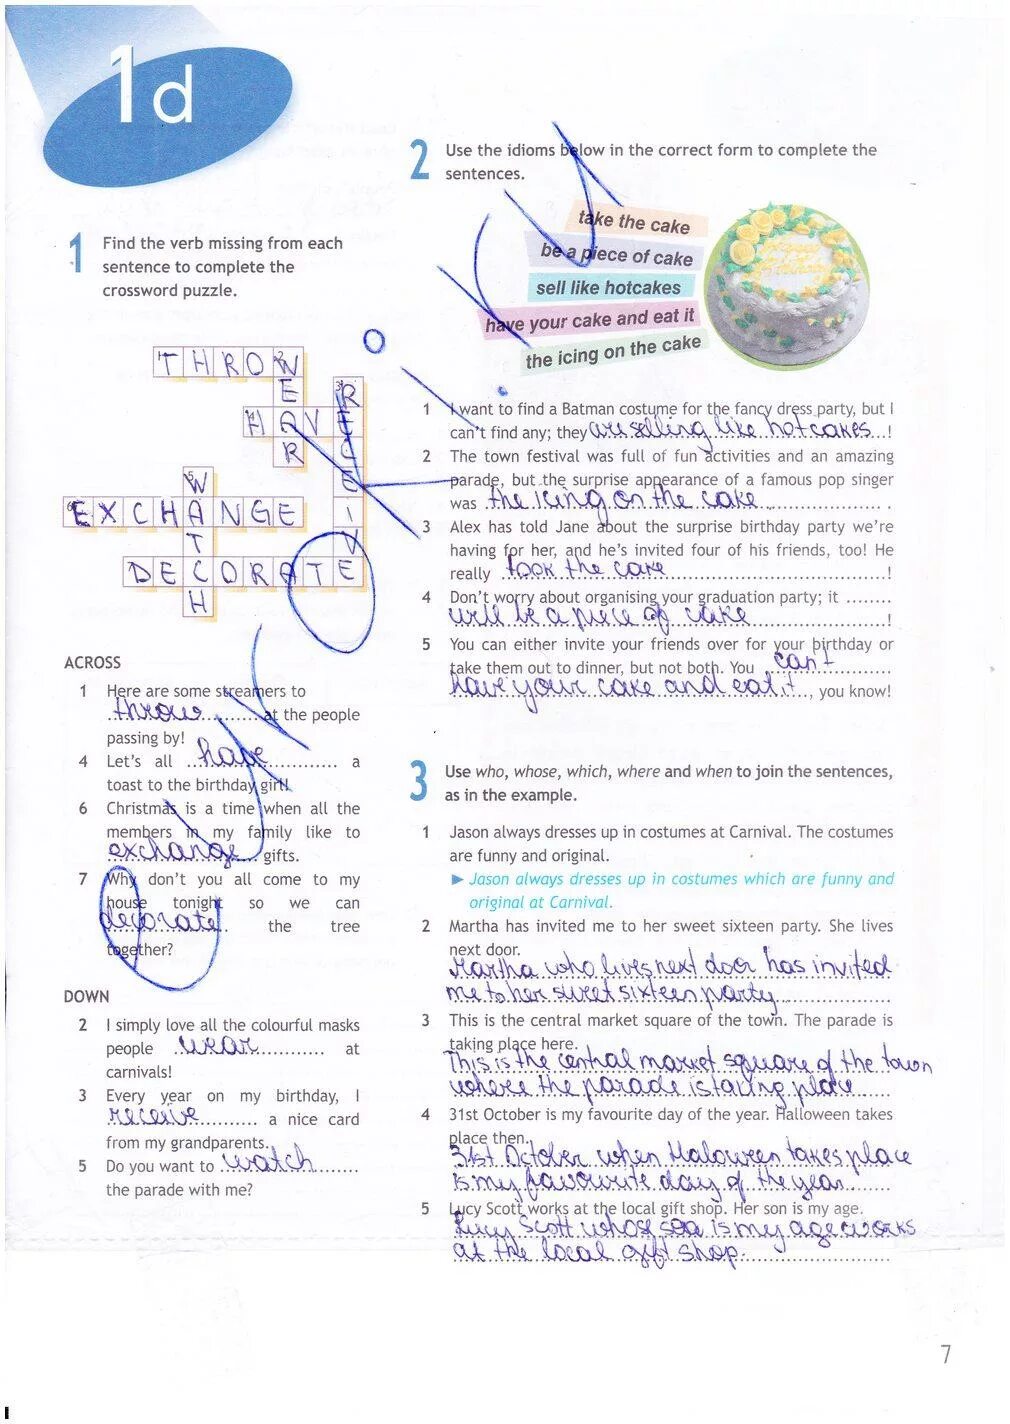 1d
1 Find the verb missing from each
sentence to complete the
crossword puzzle.
THROW
WEAR
RECEIVE
HAVE
WATCH
EXCHANGE
DECORATE
ACROSS
1 Here are some streamers to
throw at the people
passing by!
4 Let's all have a
toast to the birthday girl!
6 Christmas is a time when all the
members in my family like to
exchange gifts.
7 Why don't you all come to my
house tonight so we can
decorate the tree
together?
DOWN
2 I simply love all the colourful masks
people wear at
carnivals!
3 Every year on my birthday, I
receive a nice card
from my grandparents.
5 Do you want to watch
the parade with me?
2 Use the idioms below in the correct form to complete the
sentences.
take the cake
be a piece of cake
sell like hotcakes
have your cake and eat it
the icing on the cake
1 I want to find a Batman costume for the fancy dress party, but I
can't find any; they are selling like hotcakes!
2 The town festival was full of fun activities and an amazing
parade, but the surprise appearance of a famous pop singer
was the icing on the cake.
3 Alex has told Jane about the surprise birthday party we're
having for her, and he's invited four of his friends, too! He
really took the cake!
4 Don't worry about organising your graduation party; it
will be a piece of cake!
5 You can either invite your friends over for your birthday or
take them out to dinner, but not both. You can't
have your cake and eat it, you know!
3 Use who, whose, which, where and when to join the sentences,
as in the example.
1 Jason always dresses up in costumes at Carnival. The costumes
are funny and original.
► Jason always dresses up in costumes which are funny and
original at Carnival.
2 Martha has invited me to her sweet sixteen party. She lives
next door.
Martha who lives next door has invited
me to her sweet sixteen party
3 This is the central market square of the town. The parade is
taking place here.
This is the central market square of the town
where the parade is taking place
4 31st October is my favourite day of the year. Halloween takes
place then.
31st October when Haloween takes place
is my favourite day of the year
5 Lucy Scott works at the local gift shop. Her son is my age.
Lucy Scott whose son is my age works
at the local gift shop.
7